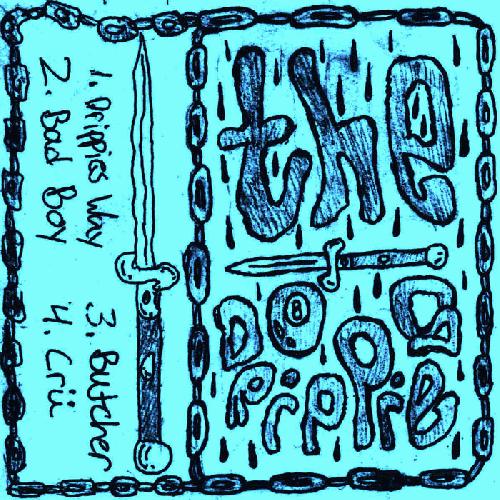 the
DOG
RiPPiE
1. Drippies Way
2. Bad Boy
3. Butcher
4. Crü